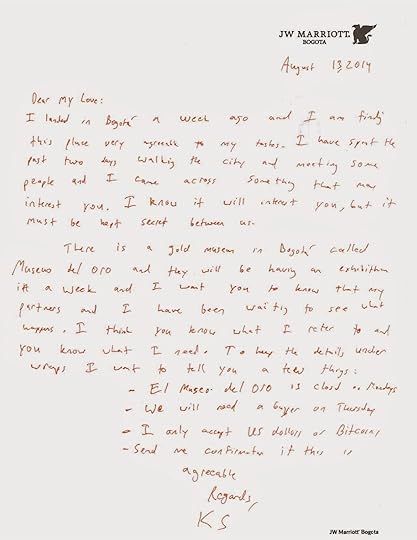 JW MARRIOTT.
BOGOTA
August 13, 2014
Dear My Love:
I landed in Bogotá a week ago and I am findg
this place very agreeable to my tastes. I have spent the
past two days walking the city and meeting some
people and I came across something that may
interest you. I know it will interest you, but it
must be kept secret between us.
There is a gold museum in Bogotá called
Museo del Oro and they will be having an exhibition
in a week and I want you to know that my
partners and I have been waiting to see what
happens. I think you know what I refer to and
you know what I need. To keep the details under
wraps I want to tell you a few things:
- El Museo del Oro is closed on Mondays
- We will need a buyer on Thursday
- I only accept US dollars or Bitcoins
- Send me confirmation if this is
agreeable
Regards,
KS
JW Marriott Bogota